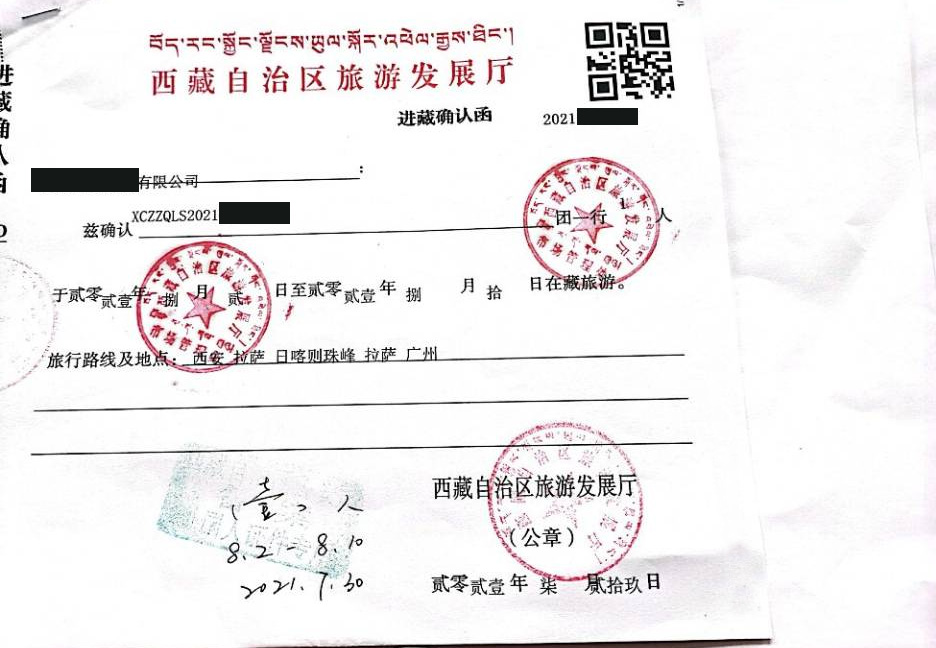 བོད་རང་སྐྱོང་ལྗོངས་ཡུལ་སྐོར་འཕེལ་རྒྱས་ཐིང་།
西藏自治区旅游发展厅
进藏确认函 2021
有限公司：
兹确认 XCZZQLS2021 团一行 1 人
于贰零贰壹年 捌 月 贰 日至贰零贰壹年 捌 月 拾 日在藏旅游。
旅行路线及地点：西安 拉萨 日喀则珠峰 拉萨 广州
西藏自治区旅游发展厅
（公章）
贰零贰壹 年 柒 月贰拾玖日
（壹）人
8.2-8.10
2021.7.30
进藏确认函
西藏自治区旅游发展厅
西藏自治区旅游发展厅